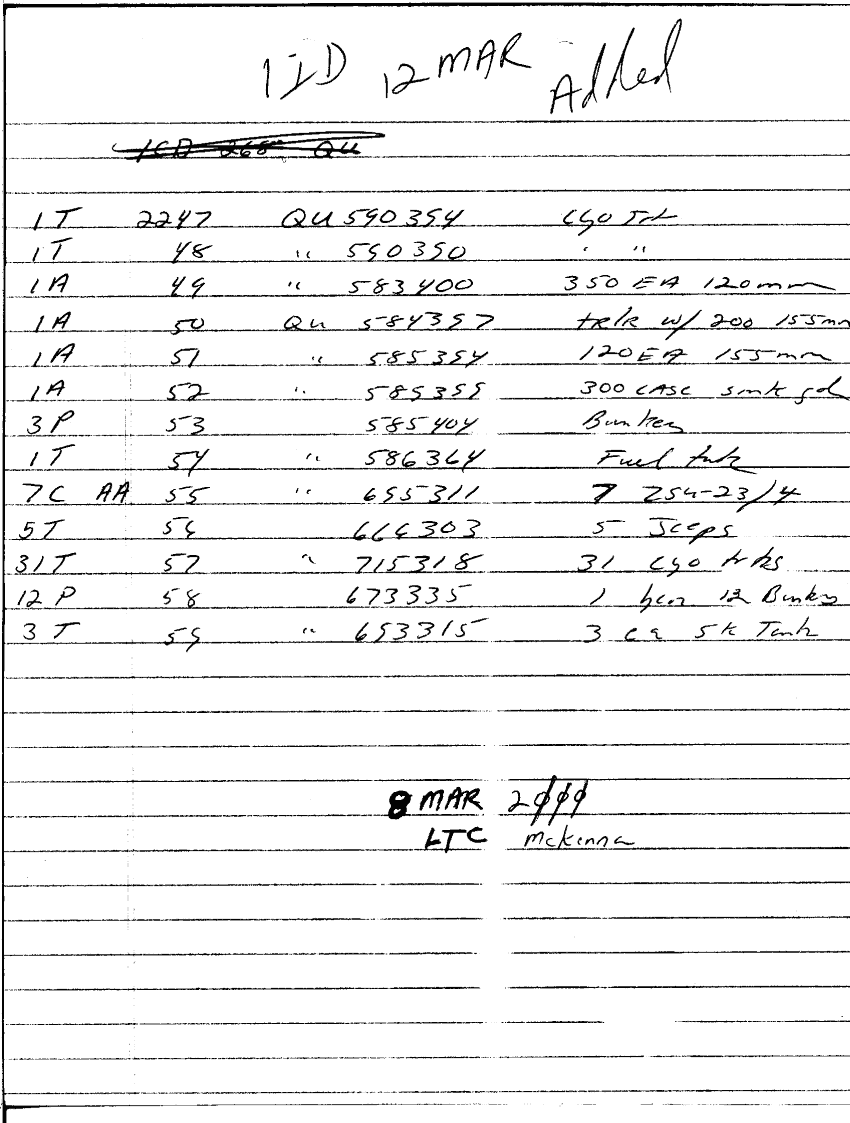 1ID 12 MAR Added
1CD 268 QU
1T 2247 QU 590394 Cgo Trk
1T 48 " 590390 " "
1A 49 " 583400 350 EA 120mm
1A 50 Qu 584397 trlr w/ 200 155mm
1A 51 " 585394 120 EA 155mm
1A 52 " 585395 300 CASE smk gd
3P 53 585404 Bunkers
1T 54 " 586364 Fuel trk
7C AA 55 " 695311 7 ZSU-23/4
5T 56 666303 5 Jeeps
31T 57 " 715318 31 cgo trks
12P 58 673335 1 12 Bunkers
3T 59 " 693315 3 ea 5k Tank
8 MAR 2000
LTC McKenna